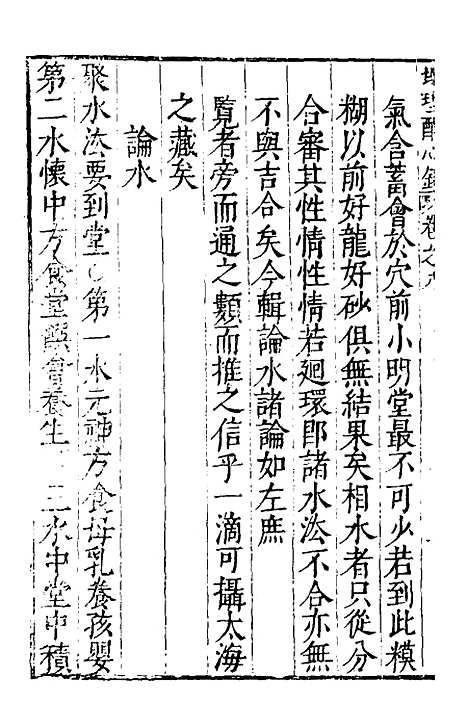 地理醒心錄卷之九
氣含蓄會於穴前小明堂最不可少若到此模
糊以前好龍好砂俱無結果矣相水者只從分
合審其性情性情若迴環即諸水法不合亦無
不與吉合矣今輯論水諸論如左庶
覽者旁而通之類而推之信乎一滴可攝太海
之藏矣
論水
聚水法要到堂○第一水元神方食母乳養孩嬰
第二水懷中方食堂 會養生 三水中堂中積